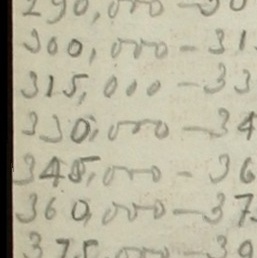 290,000 – 30
300,000 – 31
315,000 – 33
330,000 – 34
345,000 – 36
360,000 – 37
375,000 – 39